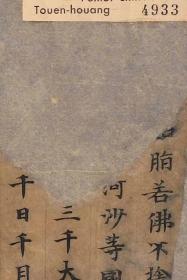 Touen-houang 4933
脂若佛不捨
河沙等國
三千大
千日千月